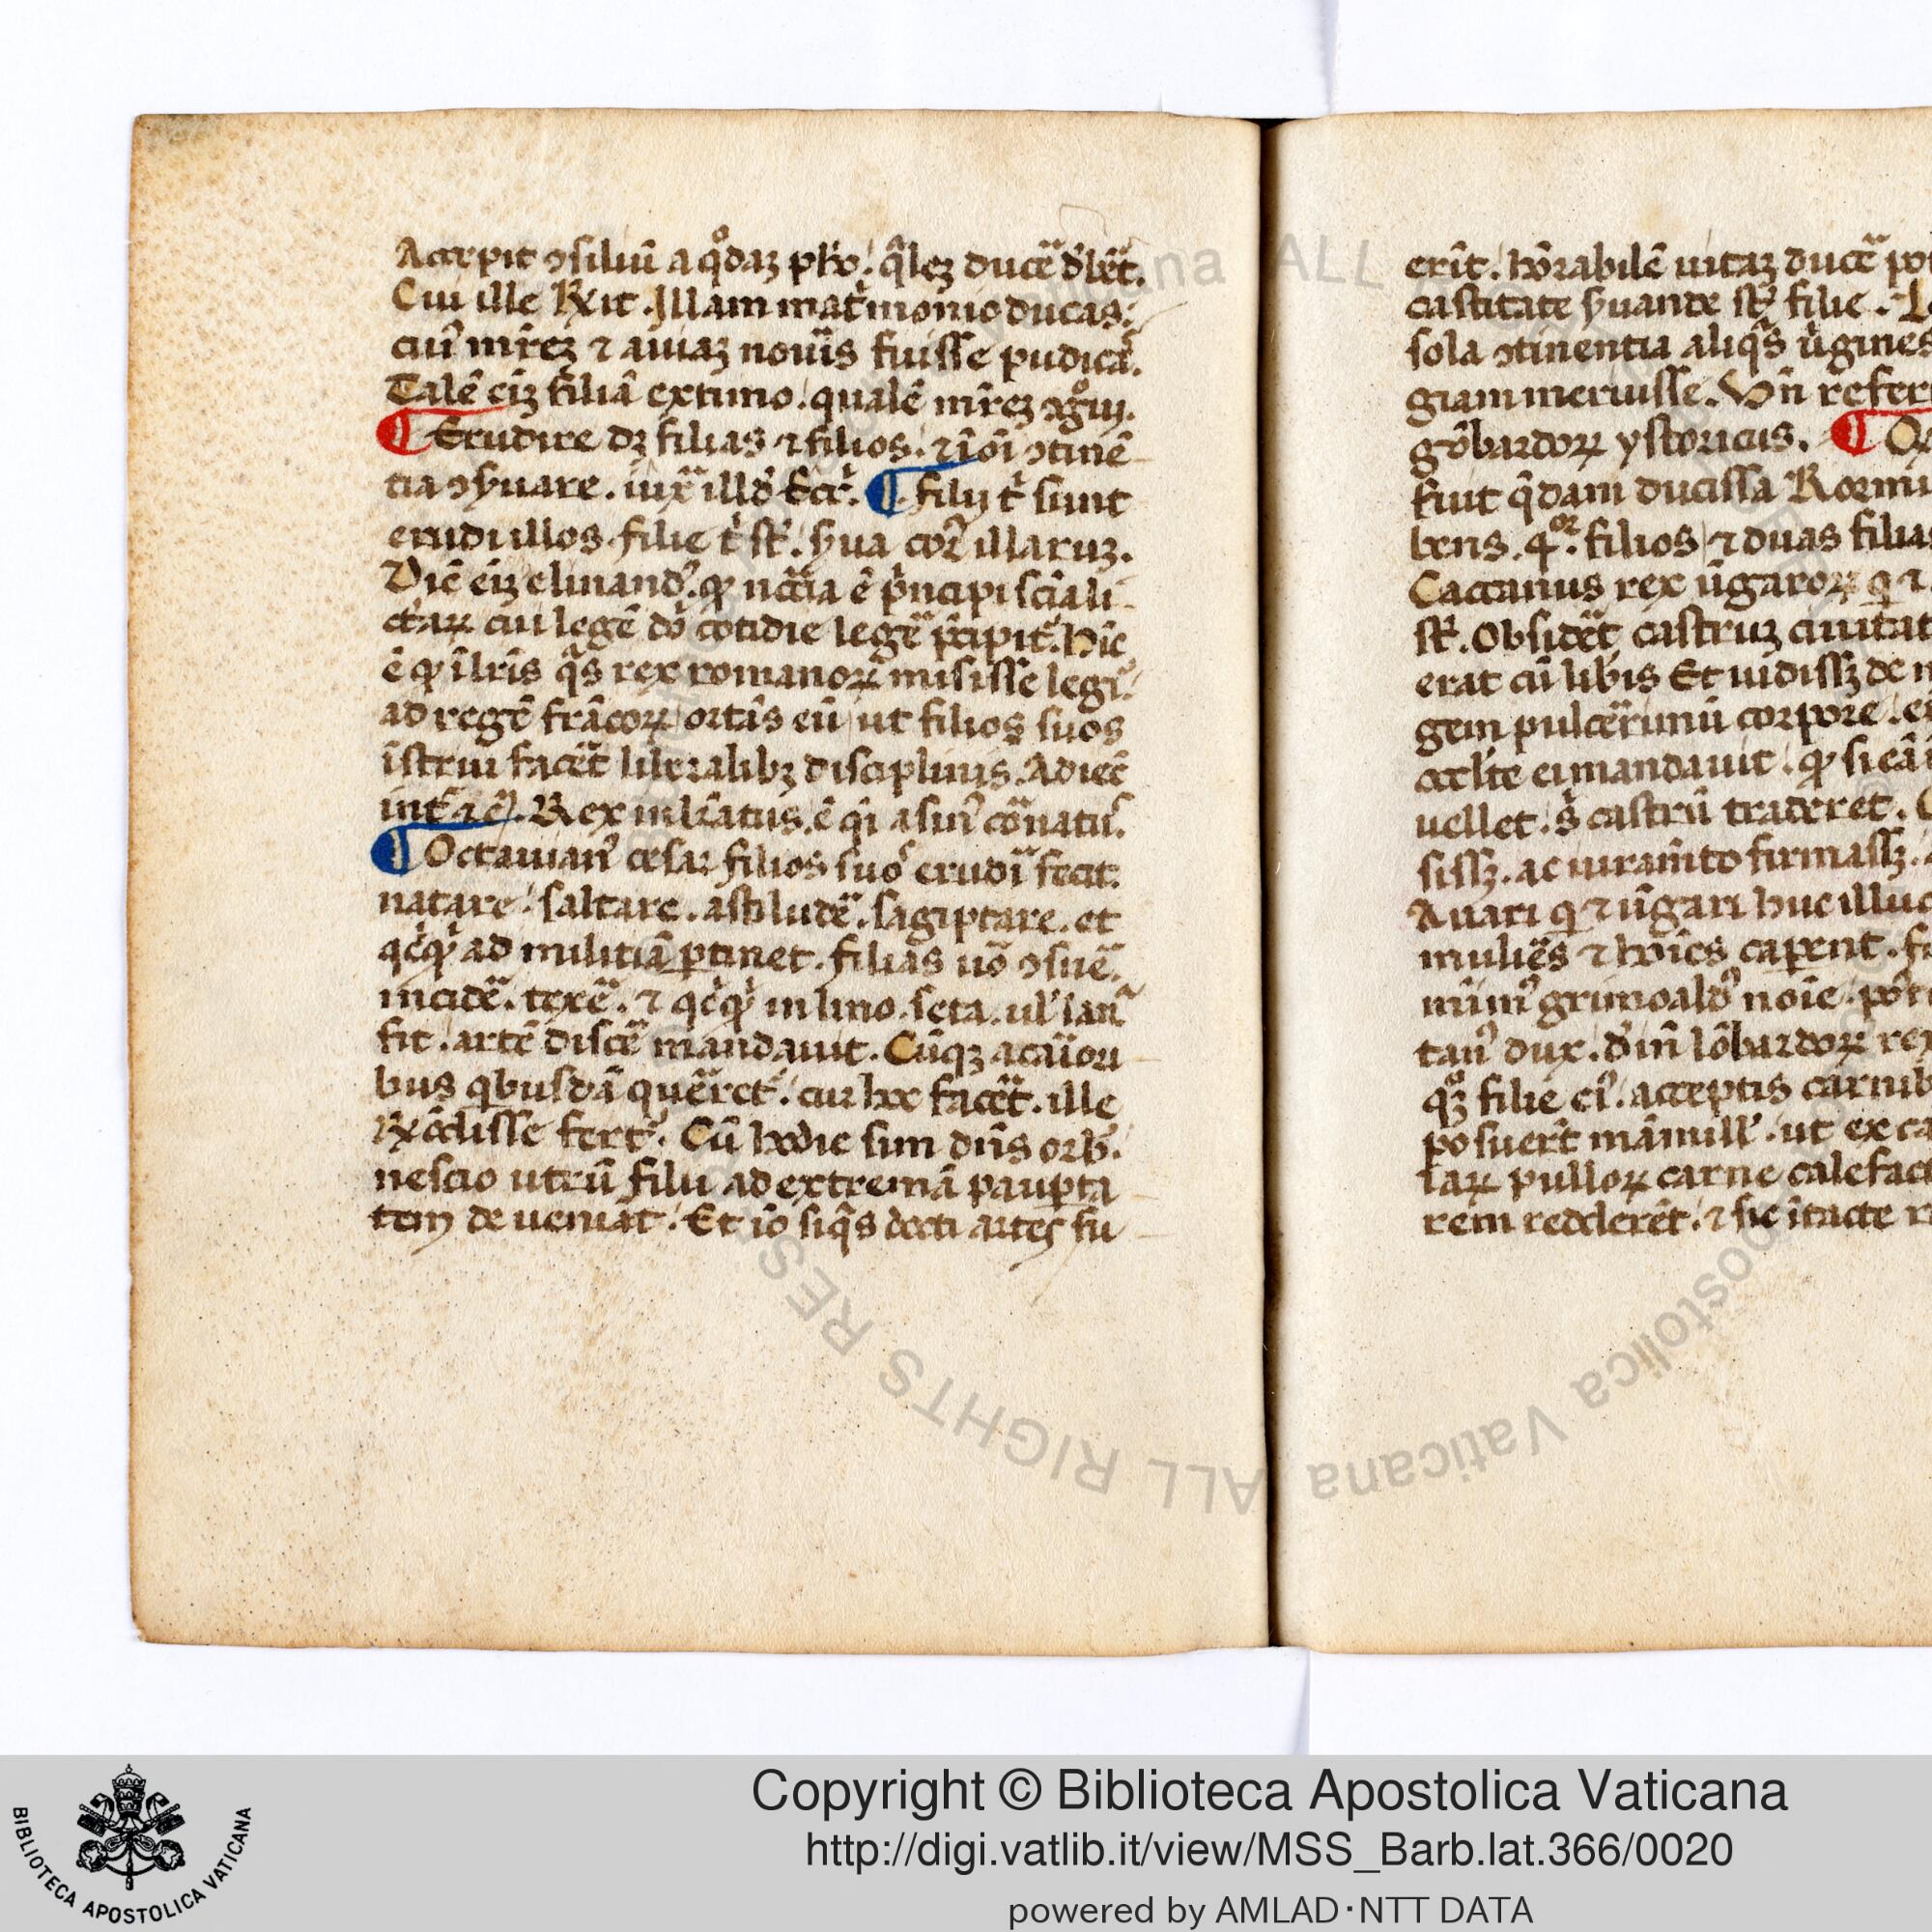 Accepit ꝯsiliū a qͦdaz pħo. q̄lez ducē dēt.
Cui ille Rx̄it. Illam mat̄monio ducas.
cuiꝰ mr̄ez ⁊ auiaz nou̅is fuisse pudicā.
Talē eiz filiā extimo. qualē mr̄ez
¶ Erudire dz filias ⁊ filios. ⁊ ī oī ꝯtinē
tia ꝯ̄suare. iux̄ illd̄ Ecc̄. ¶ filij t̄ sunt
erudi illos. filie t̄ st̄. s̄ua cor̄ illaruz.
Dic̄ eiz elinandꝰ. ꝙ nc̄c̄ia ē p̄ncipi sc̄ia li
ctaꝝ cui legē dī cotidie legē p̄cipit̄. Hīc
ē ꝙ ī lr̄is q̄s rex romanoꝝ misisse legi.̄
ad regē frācoꝝ ortās eū ut filios suos
īstrui facēt liberalibz disciplinis. Adiec̄
int̄ Rex inlr̄atus. ē q̄i asinꝰ cōnatꝰ.
¶ Octauianꝰ cesar filios suoˢ erudī fecit.
natare. saltare. astiludē. sagiptare. et
qc̄qͥ ad militiā ꝑtinet. filias uō ꝯsuē.
incidē. texē. ⁊ qc̄qͥ in lino. seta. ul̄ lan̄
fit. artē discē mandauit. Cūqz a cāiori
bus qͥbusdā querēt̄. cur hoc facēt. ille
Rx̄disse fert̄. Cū hodie sim dn̄s orb̄.
nescio utrū filii ad extremā pauꝑta
tem deueniāt. Et iō siq̄s docti artes fu
erīt. hōrabilē uitaz ducē po
castitate s̄uande st̄ filie.
sola ꝯtinentia aliqͣs ūgines
giam meruisse. Vn̄ refer
gōbardoꝝ ystoricus. ¶
fuit q̄dam ducissa Romi
bens. 4ºʳ. filios ⁊ duas filias
Cactanus rex ūgaroꝝ q ⁊
st̄. Obsidēt castruz ciuitat
erat cū lib̄is Et uidissz de
gem pulcērimū corpore. ei
occl̄te ei mandauit. ꝙ si eā
uellet. s̄ castrū traderet.
sissz. ac iuramīto firmassz.
Auari q ⁊ ūgari huc illuc
muliēs ⁊ hoīes caꝑent.
nimꝰ grimoaldꝰ noīe. pōt
tanꝰ dux. d̄in lōbardoꝝ rex
qz filie eiꝰ. acceptis carnib
posuerit māmill̄. ut ex ca
iaꝝ pulloꝝ carne calefact
rem redderēt. ⁊ sic ītacte
Copyright © Biblioteca Apostolica Vaticana
http://digi.vatlib.it/view/MSS_Barb.lat.366/0020
powered by AMLAD·NTT DATA
BIBLIOTECA APOSTOLICA VATICANA